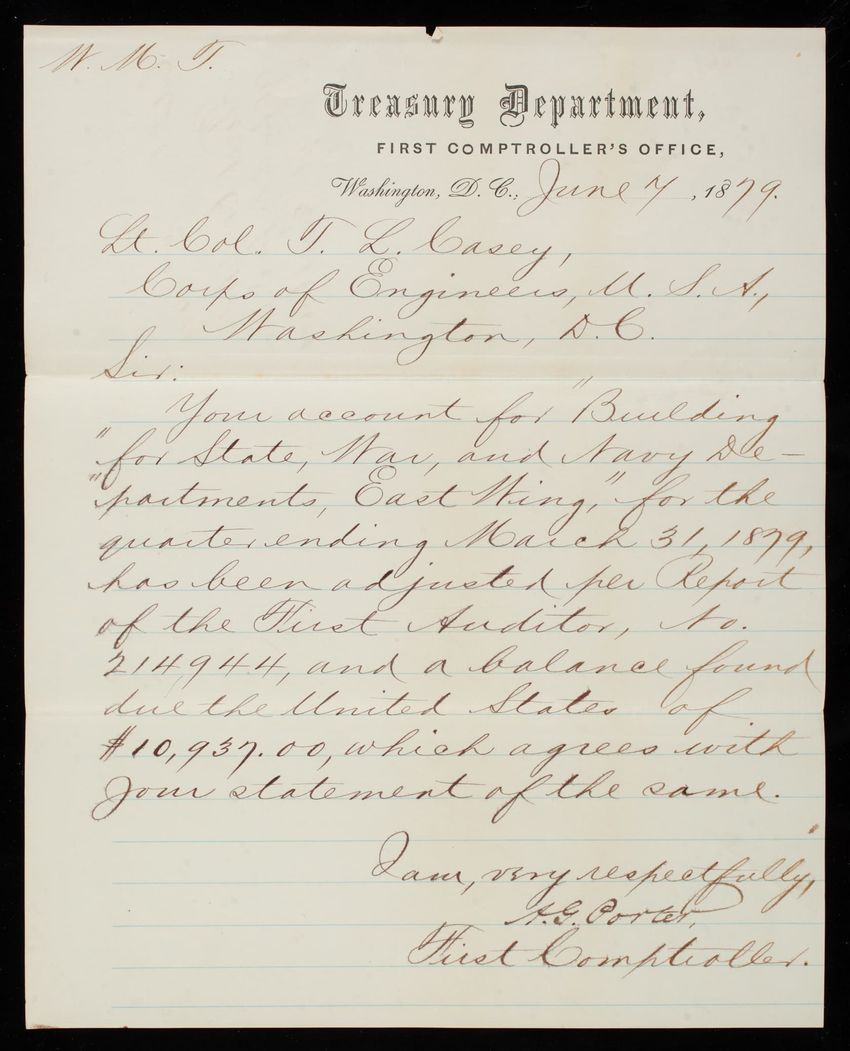 W. M. T.
Treasury Department,
FIRST COMPTROLLER'S OFFICE,
Washington, D. C., June 7, 1879.
Lt. Col. T. L. Casey,
Corps of Engineers, U. S. A.,
Washington, D.C.
Sir:
Your account for "Building
"for State, War, and Navy De-
"partments, East Wing," for the
quarter ending March 31, 1879,
has been adjusted per Report
of the First Auditor, No.
214944, and a balance found
due the United States of
$10,937.00, which agrees with
your statement of the same.
I am, very respectfully,
A.G. Porter,
First Comptroller.